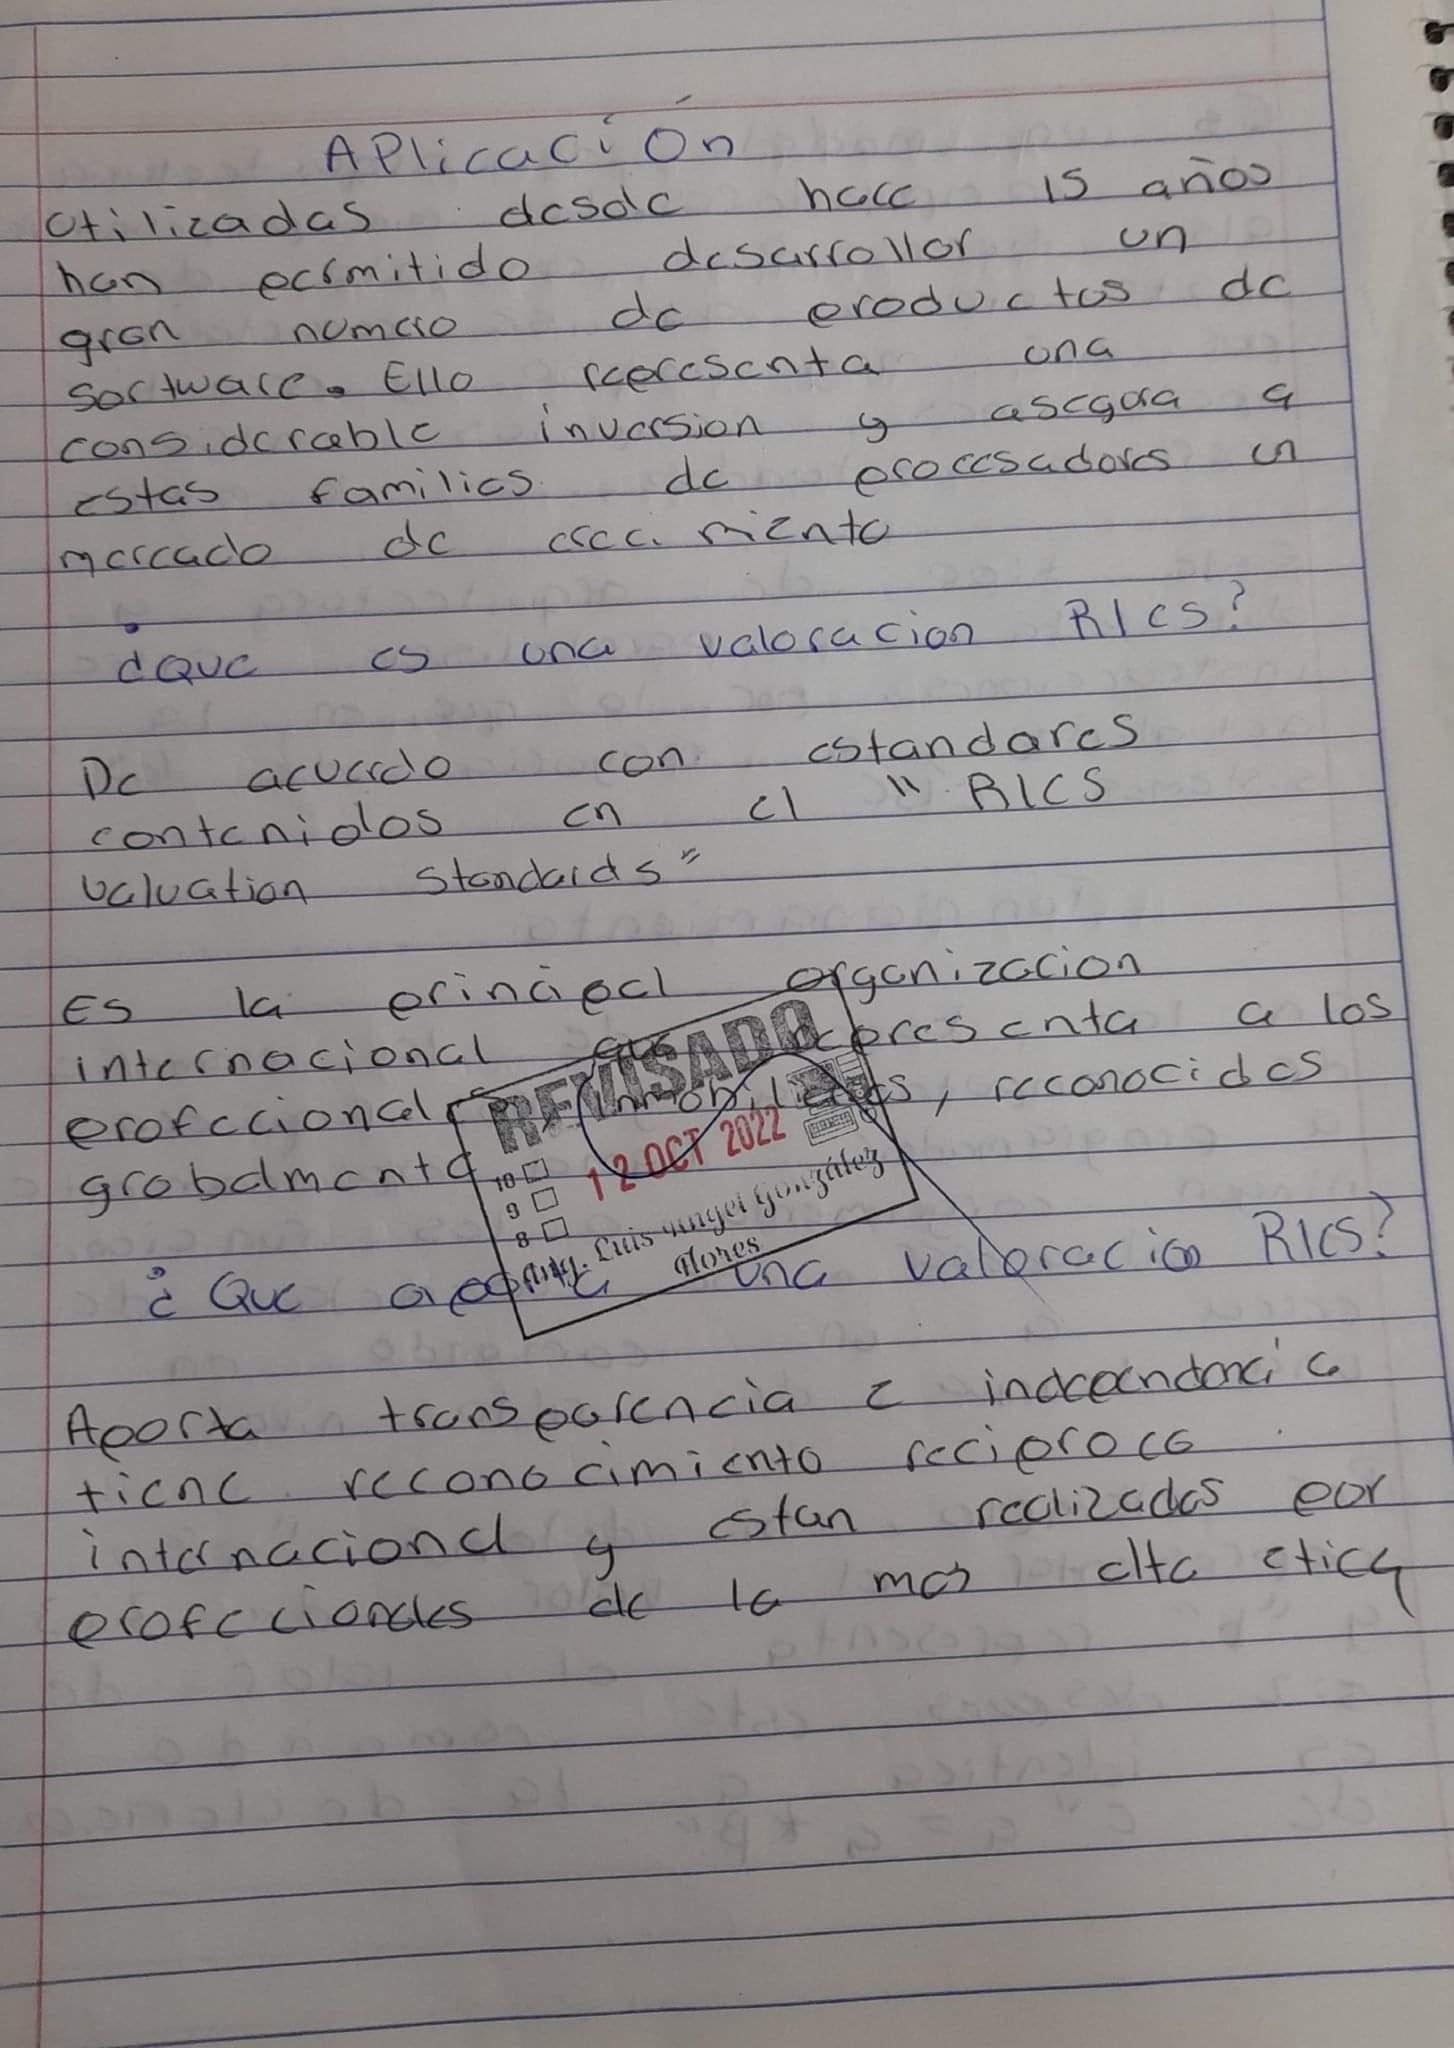 Aplicación
Utilizadas desde hace 15 años
han permitido desarrollar un
gran numero de productos de
software. Ello representa una
considerable inversion y asegura a
estas familias de procesadores un
mercado de creci miento
¿Que es una valoracion RICS?
De acuerdo con estandares
contenidos en el " RICS
valuation standards"
Es la principal organizacion
internacional que representa a los
profecionales inmobiliarios, reconocidos
grobalmente
REVISADO
12 OCT 2022
10
9
8
Ing. Luis Angel González
Flores
¿Que aporta una valoracion RICS?
Aporta transparencia e independencia
tiene reconocimiento reciproco
internacional y estan realizados por
profecionales de la mas alta etica